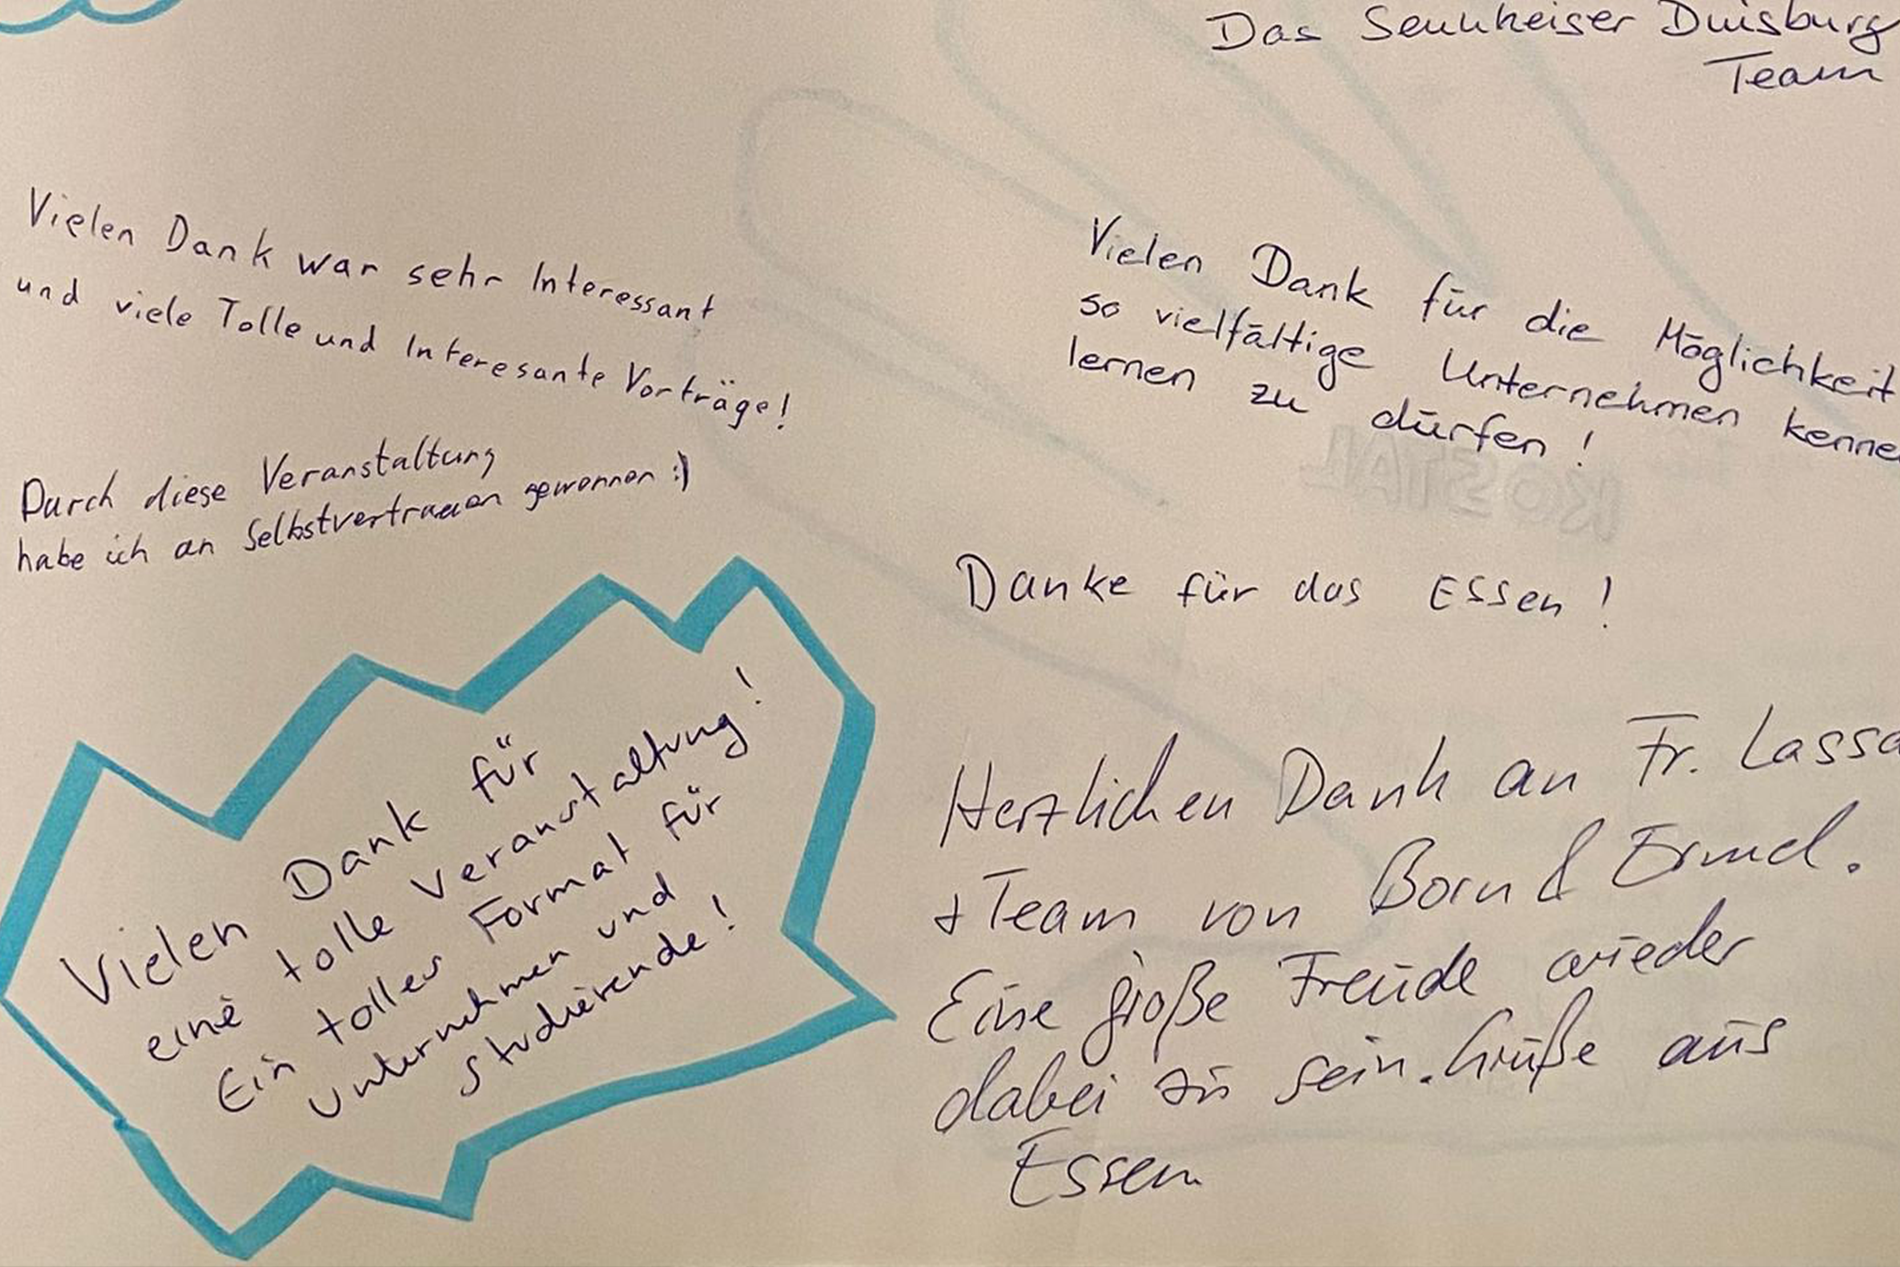 Das Sennheiser Duisburg
Team
Vielen Dank war sehr Interessant
und viele Tolle und Interesante Vorträge!
Durch diese Veranstaltung
habe ich an Selbstvertrauen gewonnen :)
Vielen Dank für
eine tolle Veranstaltung!
Ein tolles Format für
Unternehmen und
Studierende!
Vielen Dank für die Möglichkeit
so vielfältige Unternehmen kenne
lernen zu dürfen!
KOSTAL
Danke für das Essen!
Herzlichen Dank an Fr. Lassa
+ Team von Born & Ermel.
Eine große Freude wieder
dabei zu sein. Grüße aus
Essen